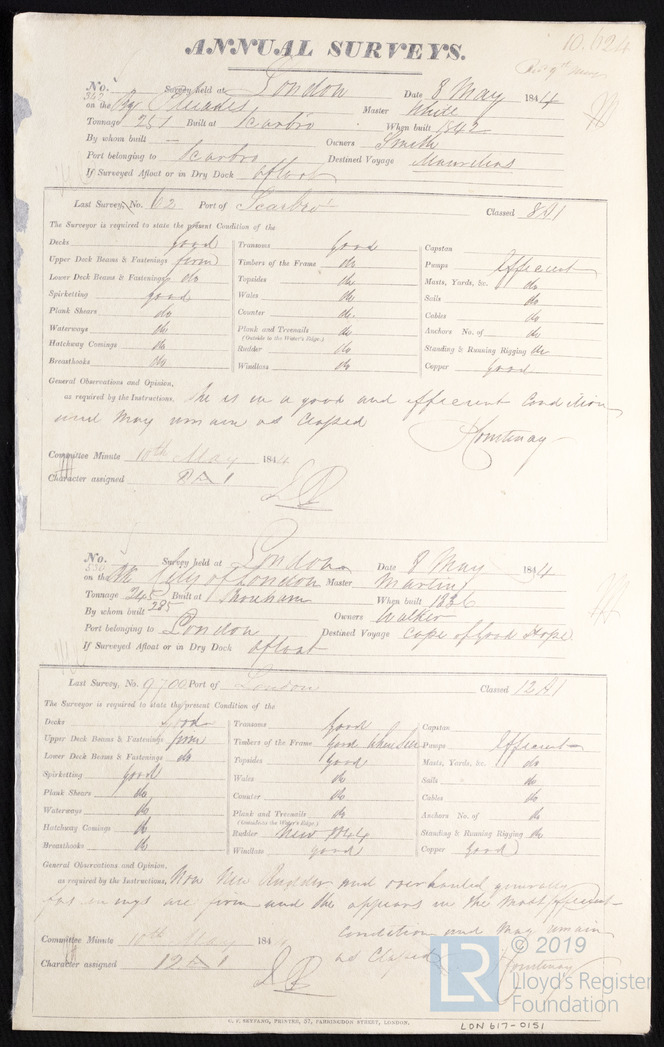 10.624
ANNUAL SURVEYS.
No. 342 Survey held at London Date 8 May 1844
on the Bg Pleiades Master White
Tonnage 251 Built at Scarbro When built 1842
By whom built — Owners Smith
Port belonging to Scarbro Destined Voyage Mauritius
If Surveyed Afloat or in Dry Dock Afloat
Last Survey, No. 62 Port of Scarbro' Classed 8A1
The Surveyor is required to state the present Condition of the
Decks good Transoms good Capstan
Upper Deck Beams & Fastenings firm Timbers of the Frame do Pumps Efficient
Lower Deck Beams & Fastenings do Topsides do Masts, Yards, &c. do
Spirketting good Wales do Sails do
Plank Shears do Counter do Cables do
Waterways do Plank and Treenails do Anchors No. of do
(Outside to the Water's Edge.)
Hatchway Comings do Rudder do Standing & Running Rigging do
Breasthooks do Windlass do Copper good
General Observations and Opinion,
as required by the Instructions. She is in a good and efficient Condition
and May remain as Classed
Kountenay
Committee Minute 10th May 1844
Character assigned 8 A 1
No. 550 Survey held at London Date 8 May 1844
on the City of London Master Martin
Tonnage 245 285 Built at Shoreham When built 1836
By whom built Owners Walker
Port belonging to London Destined Voyage Cape of Good Hope
If Surveyed Afloat or in Dry Dock Afloat
Last Survey, No. 9700 Port of London Classed 12 A1
The Surveyor is required to state the present Condition of the
Decks good Transoms good Capstan
Upper Deck Beams & Fastenings firm Timbers of the Frame good when seen Pumps Efficient
Lower Deck Beams & Fastenings do Topsides good Masts, Yards, &c. do
Spirketting good Wales do Sails do
Plank Shears do Counter do Cables do
Waterways do Plank and Treenails do Anchors No. of do
(Outside to the Water's Edge.)
Hatchway Comings do Rudder New Standing & Running Rigging do
Breasthooks do Windlass good Copper good
General Observations and Opinion,
as required by the Instructions, Now New Rudder and overhauled generally
fastenings are firm and she appears in the most efficient
Condition and May remain
as Classed Kountenay
Committee Minute 10th May 1844
Character assigned 12 A 1
C. F. SEYFANG, PRINTER, 57, FARRINGDON STREET, LONDON.
LON 617-0151
LR © 2019
Lloyd's Register
Foundation